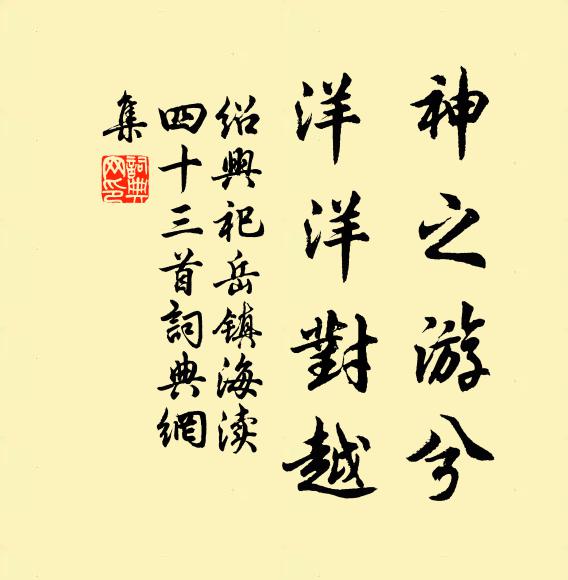 神之游兮
洋洋對越
绍興祀岳鎮海渎
四十三首詞典網
集
詞典網印